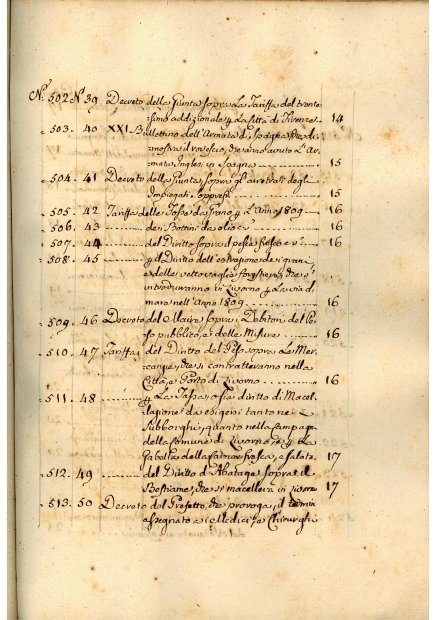 N.º 502 N.º 39 Decreto della Giunta sopra La Tariffa del trente
simo addizionale p La Città di Firenze 14
503. 40 XXI. Bullettino dell'Armata di Spagna, che di
mostra il rovescio, che anno avuto L'Ar
mata Inglese in Spagna 15
504. 41 Decreto della Giunta, sopra gli arretrati degli
Impiegati Soppressi 15
505. 42 Tariffa delle Fosse da Grano p L'Anno 1809 16
506. 43 dei Bottini da olio 16
507. 44 del Diritto sopra il pesce fresco 16
508. 45 p il Diritto dell'estrazione dei grani
e delle vettovaglie forestiere, che s'
introdurranno in Livorno p La via di
mare nell'Anno 1809 16
509. 46 Decreto del Maire sopra i Debitori del Pe
so pubblico, e delle Misure 16
510. 47 Tariffa del Diritto del Peso sopra Le Mer
canzie, che si contratteranno nella
Città, e Porto di Livorno 16
511. 48 p La Tassa, o sia diritto di Macel
lazione da esigersi tanto nei
Subborghi, quanto nella campagna
della Comune di Livorno, e p La
Gabella della Carne fresca, e salata 17
512. 49 del Diritto d'Abatage sopra il
Bestiame, che si macellera in Livorno 17
513. 50 Decreto del Prefetto, che proroga il termine
assegnato ai Medici, e Chirurghi